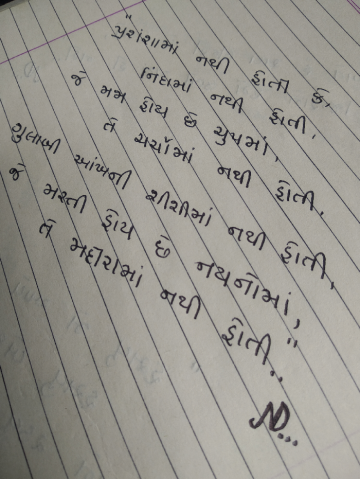 "પ્રશંસામાં નથી હોતી કે,
નિંદામાં નથી હોતી,
જે મજા હોય છે ચુપમાં,
તે ચર્ચામાં નથી હોતી,
ગુલાબી આંખની શીશીમાં નથી હોતી,
જે મસ્તી હોય છે નયનોમાં,
તે મદીરામાં નથી હોતી.."
ND...